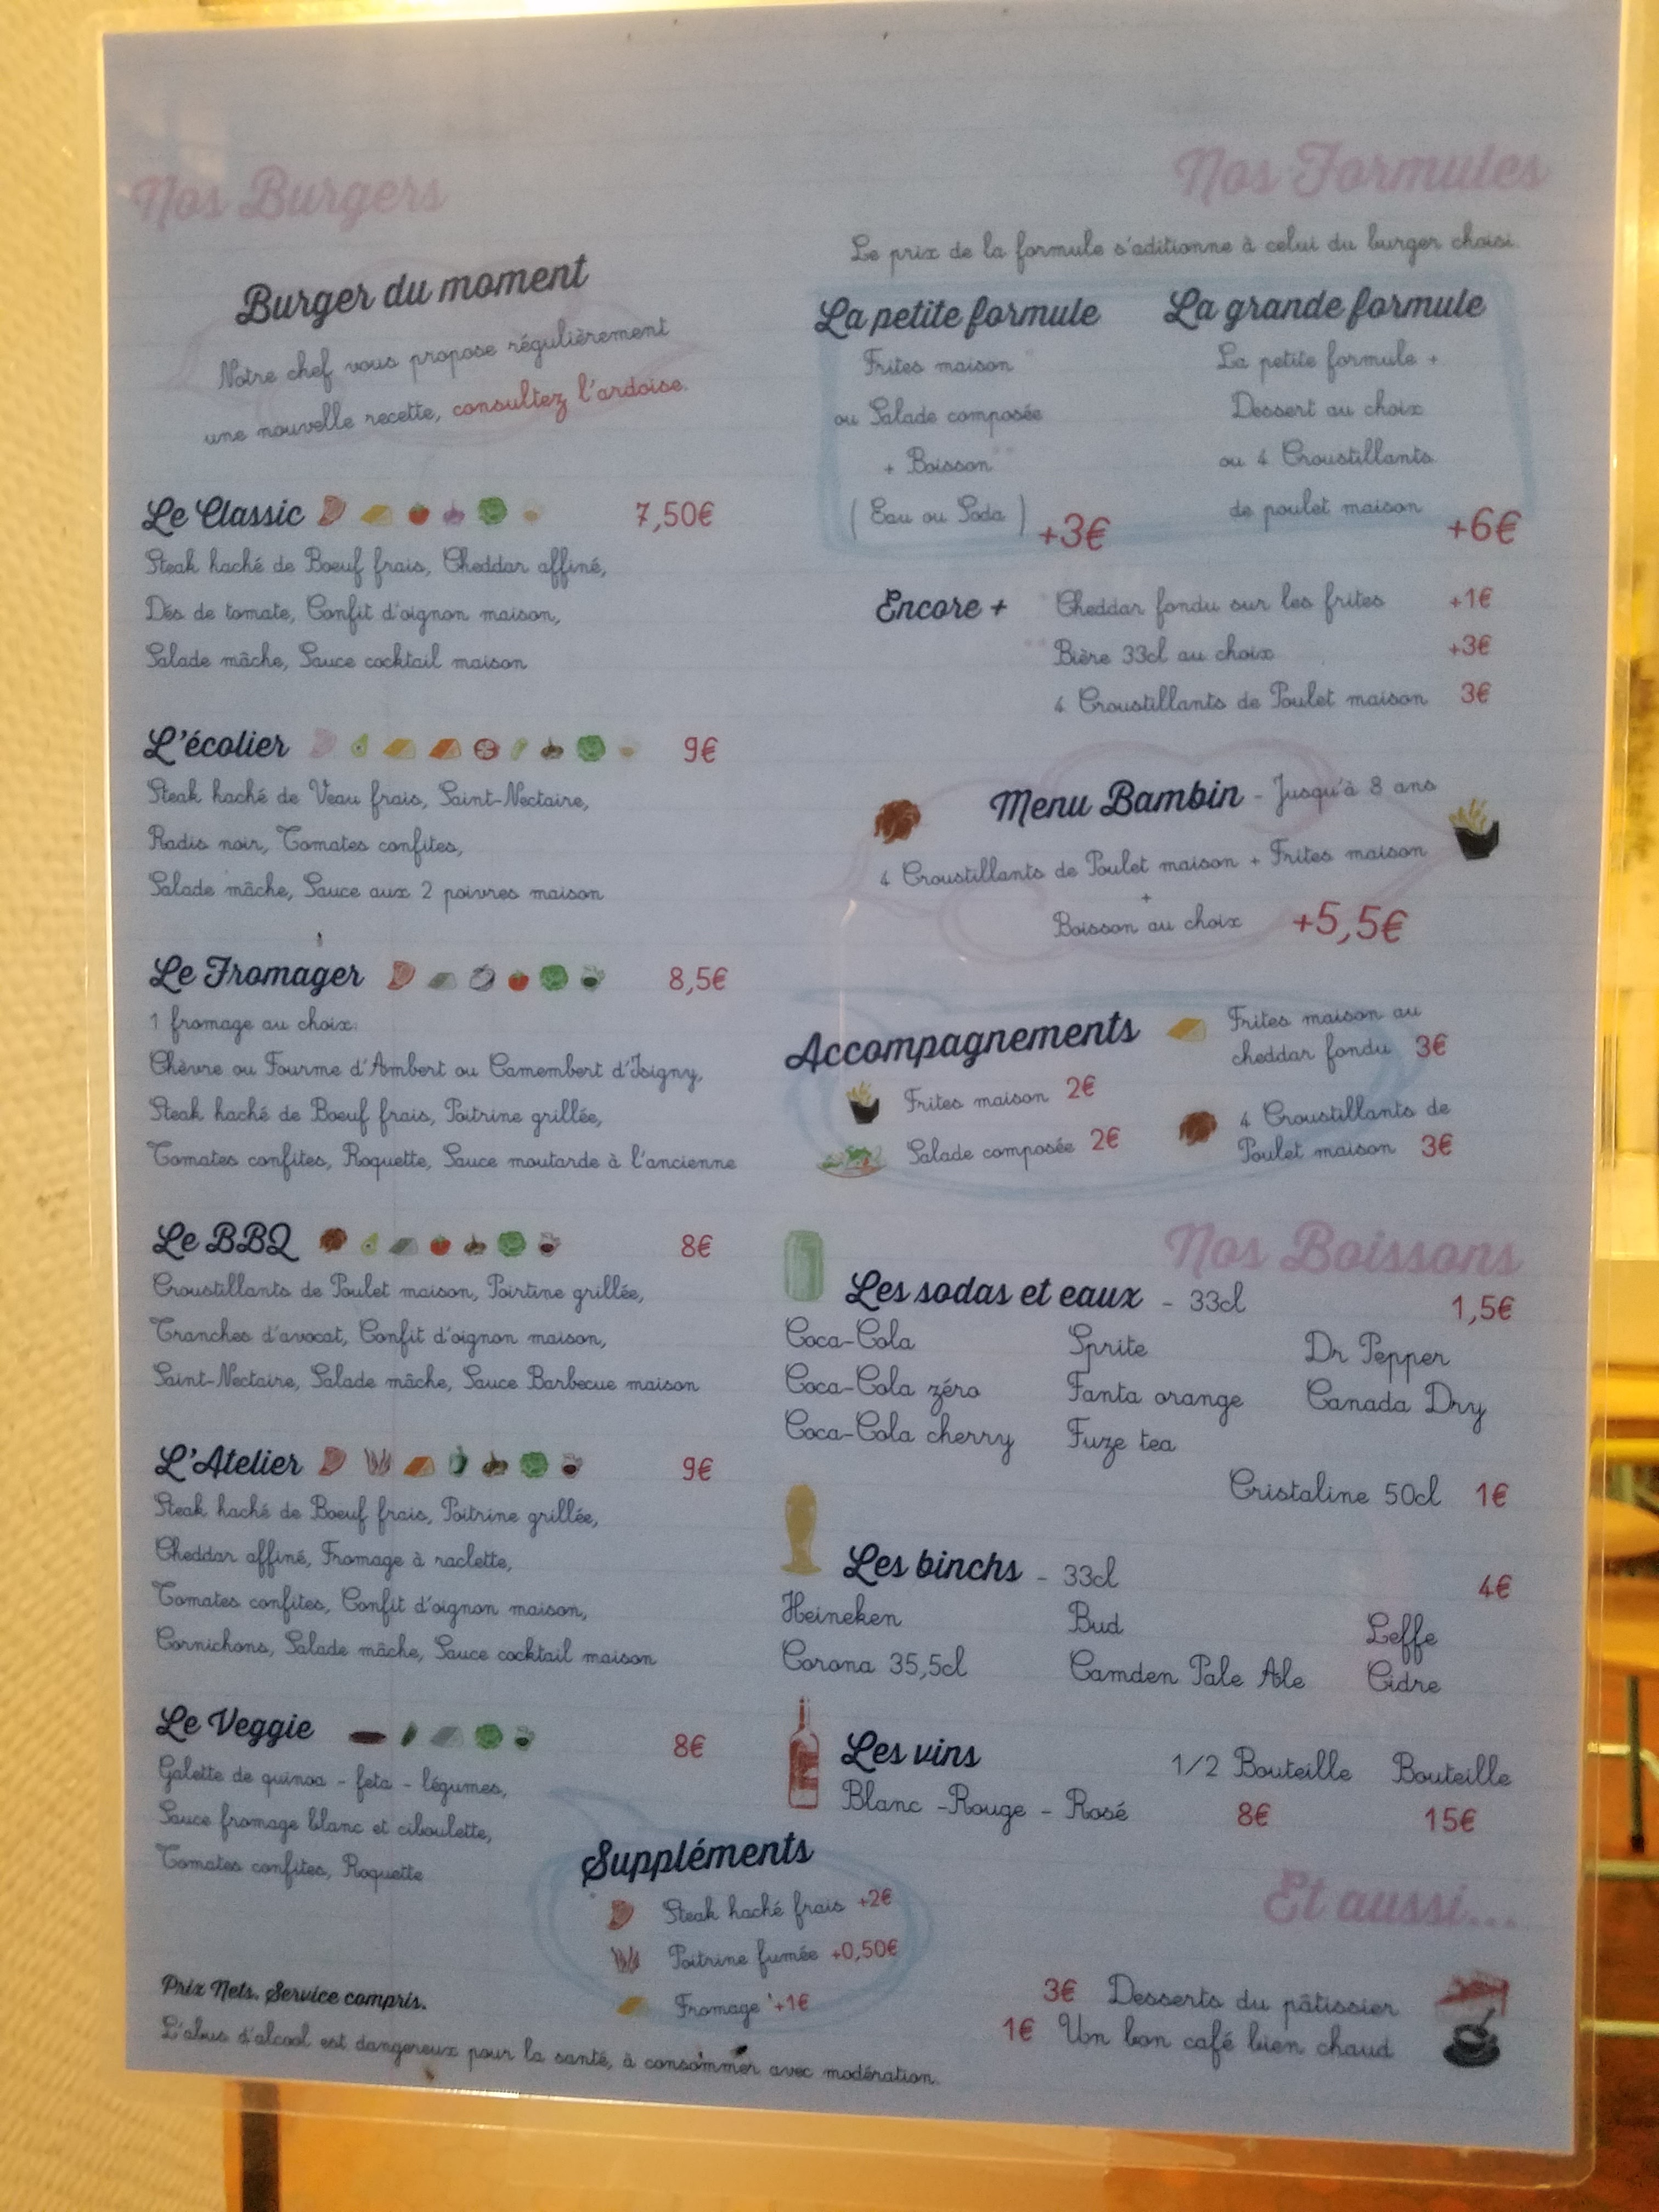 Nos Burgers
Burger du moment
Notre chef vous propose régulièrement
une nouvelle recette, consultez l'ardoise.
Le Classic 7,50€
Steak haché de Boeuf frais, Cheddar affiné,
Dés de tomate, Confit d'oignon maison,
Salade mâche, Sauce cocktail maison
L'écolier 9€
Steak haché de Veau frais, Saint-Nectaire,
Radis noir, Tomates confites,
Salade mâche, Sauce aux 2 poivres maison
Le Fromager 8,5€
1 fromage au choix:
Chèvre ou Fourme d'Ambert ou Camembert d'Isigny,
Steak haché de Boeuf frais, Poitrine grillée,
Tomates confites, Roquette, Sauce moutarde à l'ancienne
Le BBQ 8€
Croustillants de Poulet maison, Poirtine grillée,
Tranches d'avocat, Confit d'oignon maison,
Saint-Nectaire, Salade mâche, Sauce Barbecue maison
L'Atelier 9€
Steak haché de Boeuf frais, Poitrine grillée,
Cheddar affiné, Fromage à raclette,
Tomates confites, Confit d'oignon maison,
Cornichons, Salade mâche, Sauce cocktail maison
Le Veggie 8€
Galette de quinoa - feta - légumes,
Sauce fromage blanc et ciboulette,
Tomates confites, Roquette
Suppléments
Steak haché frais +2€
Poitrine fumée +0,50€
Fromage +1€
Prix Nets. Service compris.
L'abus d'alcool est dangereux pour la santé, à consommer avec modération.
Nos Formules
Le prix de la formule s'aditionne à celui du burger choisi.
La petite formule
Frites maison
ou Salade composée
+ Boisson
( Eau ou Soda ) +3€
La grande formule
La petite formule +
Dessert au choix
ou 4 Croustillants
de poulet maison +6€
Encore + Cheddar fondu sur les frites +1€
Bière 33cl au choix +3€
4 Croustillants de Poulet maison 3€
Menu Bambin - Jusqu'à 8 ans
4 Croustillants de Poulet maison + Frites maison
+
Boisson au choix +5,5€
Accompagnements
Frites maison 2€
Salade composée 2€
Frites maison au
cheddar fondu 3€
4 Croustillants de
Poulet maison 3€
Nos Boissons
Les sodas et eaux - 33cl 1,5€
Coca-Cola Sprite Dr Pepper
Coca-Cola zéro Fanta orange Canada Dry
Coca-Cola cherry Fuze tea
Cristaline 50cl 1€
Les binchs - 33cl 4€
Heineken Bud Leffe
Corona 35,5cl Camden Pale Ale Cidre
Les vins 1/2 Bouteille Bouteille
Blanc -Rouge - Rosé 8€ 15€
Et aussi...
3€ Desserts du pâtissier
1€ Un bon café bien chaud